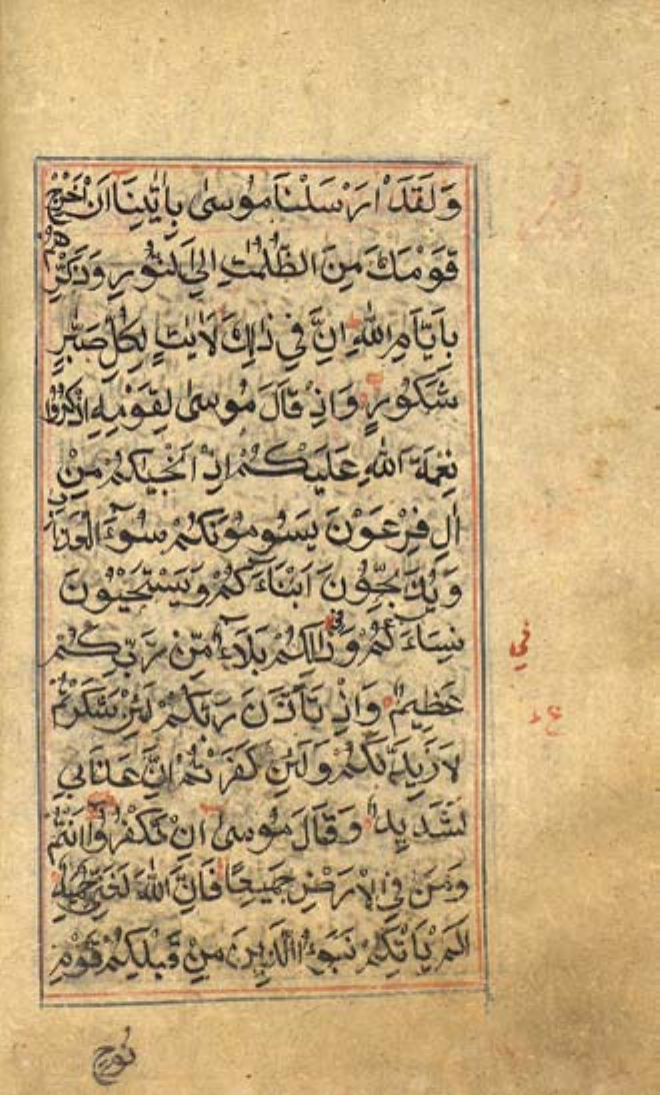 وَلَقَدْ اَرْسَلْنَا مُوسٰى بِاٰيٰتِنَا اَنْ اَخْرِجْ
قَوْمَكَ مِنَ الظُّلُمٰتِ اِلَى النُّورِ وَذَكِّرْهُمْ
بِاَيَّامِ اللّٰهِ اِنَّ فِي ذٰلِكَ لَاٰيٰتٍ لِكُلِّ صَبَّارٍ
شَكُورٍ وَاِذْ قَالَ مُوسٰى لِقَوْمِهِ اذْكُرُوا
نِعْمَةَ اللّٰهِ عَلَيْكُمْ اِذْ اَنْجٰيكُمْ مِنْ
اٰلِ فِرْعَوْنَ يَسُومُونَكُمْ سُوٓءَ الْعَذَابِ
وَيُذَبِّحُونَ اَبْنَآءَكُمْ وَيَسْتَحْيُونَ
نِسَآءَكُمْ وَفِي ذٰلِكُمْ بَلَآءٌ مِّنْ رَّبِّكُمْ
عَظِيمٌ وَاِذْ تَاَذَّنَ رَبُّكُمْ لَئِنْ شَكَرْتُمْ
لَاَزِيدَنَّكُمْ وَلَئِنْ كَفَرْتُمْ اِنَّ عَذَابِي
لَشَدِيدٌ وَقَالَ مُوسٰى اِنْ تَكْفُرُوا اَنْتُمْ
وَمَنْ فِي الْاَرْضِ جَمِيعًا فَاِنَّ اللّٰهَ لَغَنِيٌّ حَمِيدٌ
اَلَمْ يَاْتِكُمْ نَبَؤُا الَّذِينَ مِنْ قَبْلِكُمْ قَوْمِ
نُوحٍ
في